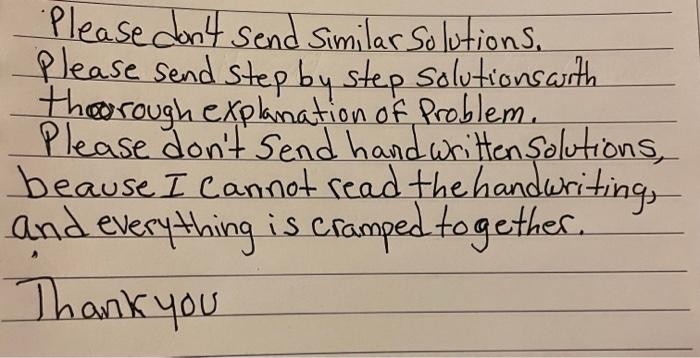 Please don't send similar solutions.
Please send step by step solutions with
thoorough explanation of Problem.
Please don't send handwritten solutions,
beause I cannot read the handwriting,
and everything is cramped together.
Thank you